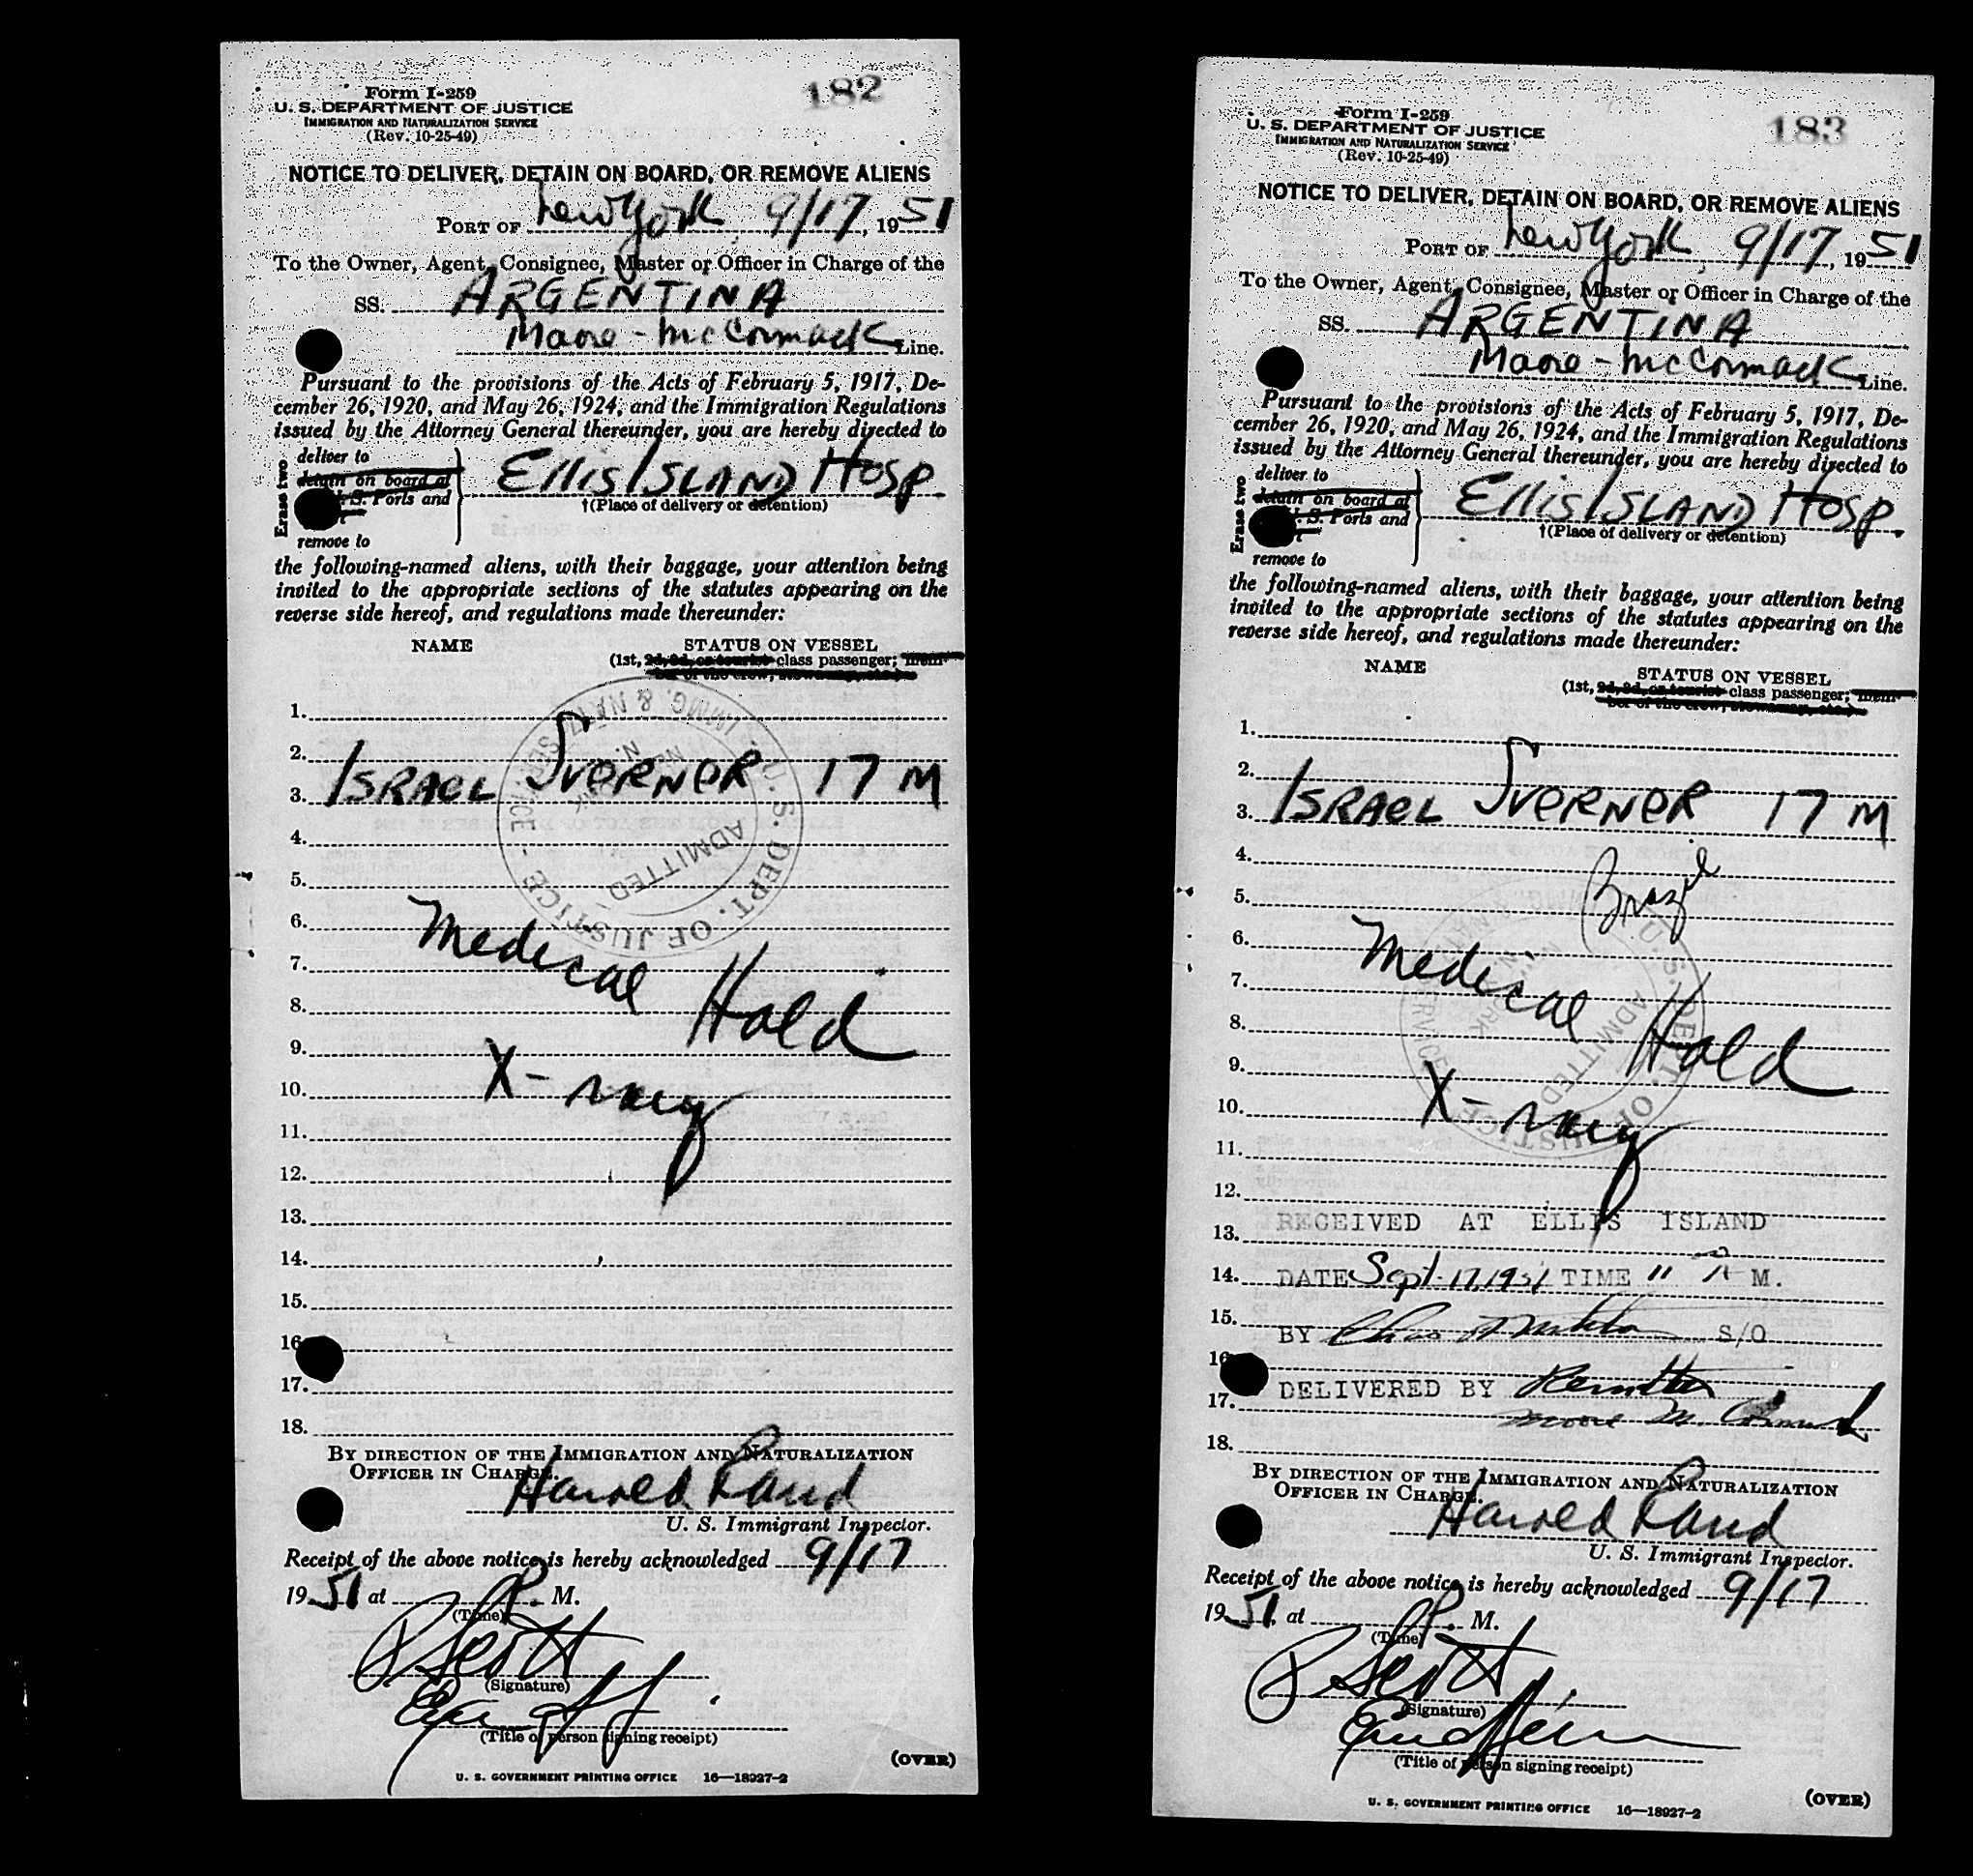 182
Form I-259
U. S. DEPARTMENT OF JUSTICE
IMMIGRATION AND NATURALIZATION SERVICE
(Rev. 10-25-49)
NOTICE TO DELIVER, DETAIN ON BOARD, OR REMOVE ALIENS
PORT OF New York, 9/17, 1951
To the Owner, Agent, Consignee, Master or Officer in Charge of the
SS. ARGENTINA
Moore-McCormack Line.
Pursuant to the provisions of the Acts of February 5, 1917, De-
cember 26, 1920, and May 26, 1924, and the Immigration Regulations
issued by the Attorney General thereunder, you are hereby directed to
Erase two
deliver to
detain on board at
U. S. Ports and
remove to
ELLIS ISLAND HOSP.
†(Place of delivery or detention)
the following-named aliens, with their baggage, your attention being
invited to the appropriate sections of the statutes appearing on the
reverse side hereof, and regulations made thereunder:
NAME STATUS ON VESSEL
(1st, 2d, 3d, or tourist class passenger; mem-
ber of the crew, stowaway, etc.)
1.
2.
3. ISRAEL SVERNER 17 M
4.
5.
6.
Medical Hold
7.
8.
9.
10. X-ray
11.
12.
13.
14.
15.
16.
17.
18.
U. S. DEPT. OF JUSTICE - IMMG. & NATZ. SERVICE -
NEW YORK, N.
ADMITTED
BY DIRECTION OF THE IMMIGRATION AND NATURALIZATION
OFFICER IN CHARGE.
Harold Rand
U. S. Immigrant Inspector.
Receipt of the above notice is hereby acknowledged 9/17
1951 at P. M.
(Time)
P Scott
(Signature)
(Title of person signing receipt)
(OVER)
U. S. GOVERNMENT PRINTING OFFICE 16—18927-2
183
Form I-259
U. S. DEPARTMENT OF JUSTICE
IMMIGRATION AND NATURALIZATION SERVICE
(Rev. 10-25-49)
NOTICE TO DELIVER, DETAIN ON BOARD, OR REMOVE ALIENS
PORT OF New York, 9/17, 1951
To the Owner, Agent, Consignee, Master or Officer in Charge of the
SS. ARGENTINA
Moore-McCormack Line.
Pursuant to the provisions of the Acts of February 5, 1917, De-
cember 26, 1920, and May 26, 1924, and the Immigration Regulations
issued by the Attorney General thereunder, you are hereby directed to
Erase two
deliver to
detain on board at
U. S. Ports and
remove to
ELLIS ISLAND HOSP.
†(Place of delivery or detention)
the following-named aliens, with their baggage, your attention being
invited to the appropriate sections of the statutes appearing on the
reverse side hereof, and regulations made thereunder:
NAME STATUS ON VESSEL
(1st, 2d, 3d, or tourist class passenger; mem-
ber of the crew, stowaway, etc.)
1.
2.
3. ISRAEL SVERNER 17 M
4.
Brazil
5.
6.
Medical Hold
7.
8.
9.
10. X-ray
11.
12.
RECEIVED AT ELLIS ISLAND
13.
14. DATE Sept. 17, 1951 TIME 11 P M.
15.
BY S/O
16.
DELIVERED BY
17. Moore McCormack
18.
U. S. DEPT. OF JUSTICE
ADMITTED
BY DIRECTION OF THE IMMIGRATION AND NATURALIZATION
OFFICER IN CHARGE.
Harold Rand
U. S. Immigrant Inspector.
Receipt of the above notice is hereby acknowledged 9/17
1951, at P. M.
(Time)
P Scott
(Signature)
(Title of person signing receipt)
(OVER)
U. S. GOVERNMENT PRINTING OFFICE 16—18927-2